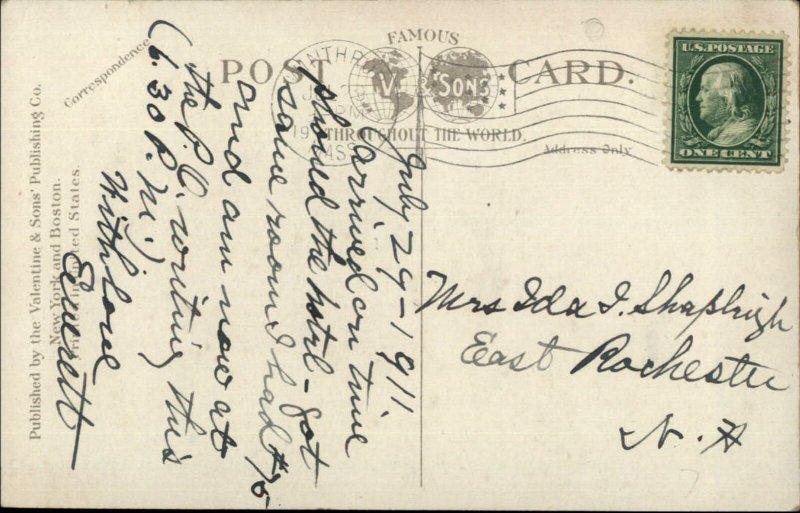 FAMOUS
POST CARD.
V. & SONS
THROUGHOUT THE WORLD.
Correspondence
Address Only
Published by the Valentine & Sons' Publishing Co.
New York and Boston.
Printed in United States.
U.S. POSTAGE
ONE CENT
WINTHROP
MASS
July, 29-1911
Arrived on time
phoned the hotel - got
same room I had
and am now at
the P.O. writing this
(6.30 P.M.)
With love
Everett
Mrs Ida J. Shapleigh
East Rochester
N. H